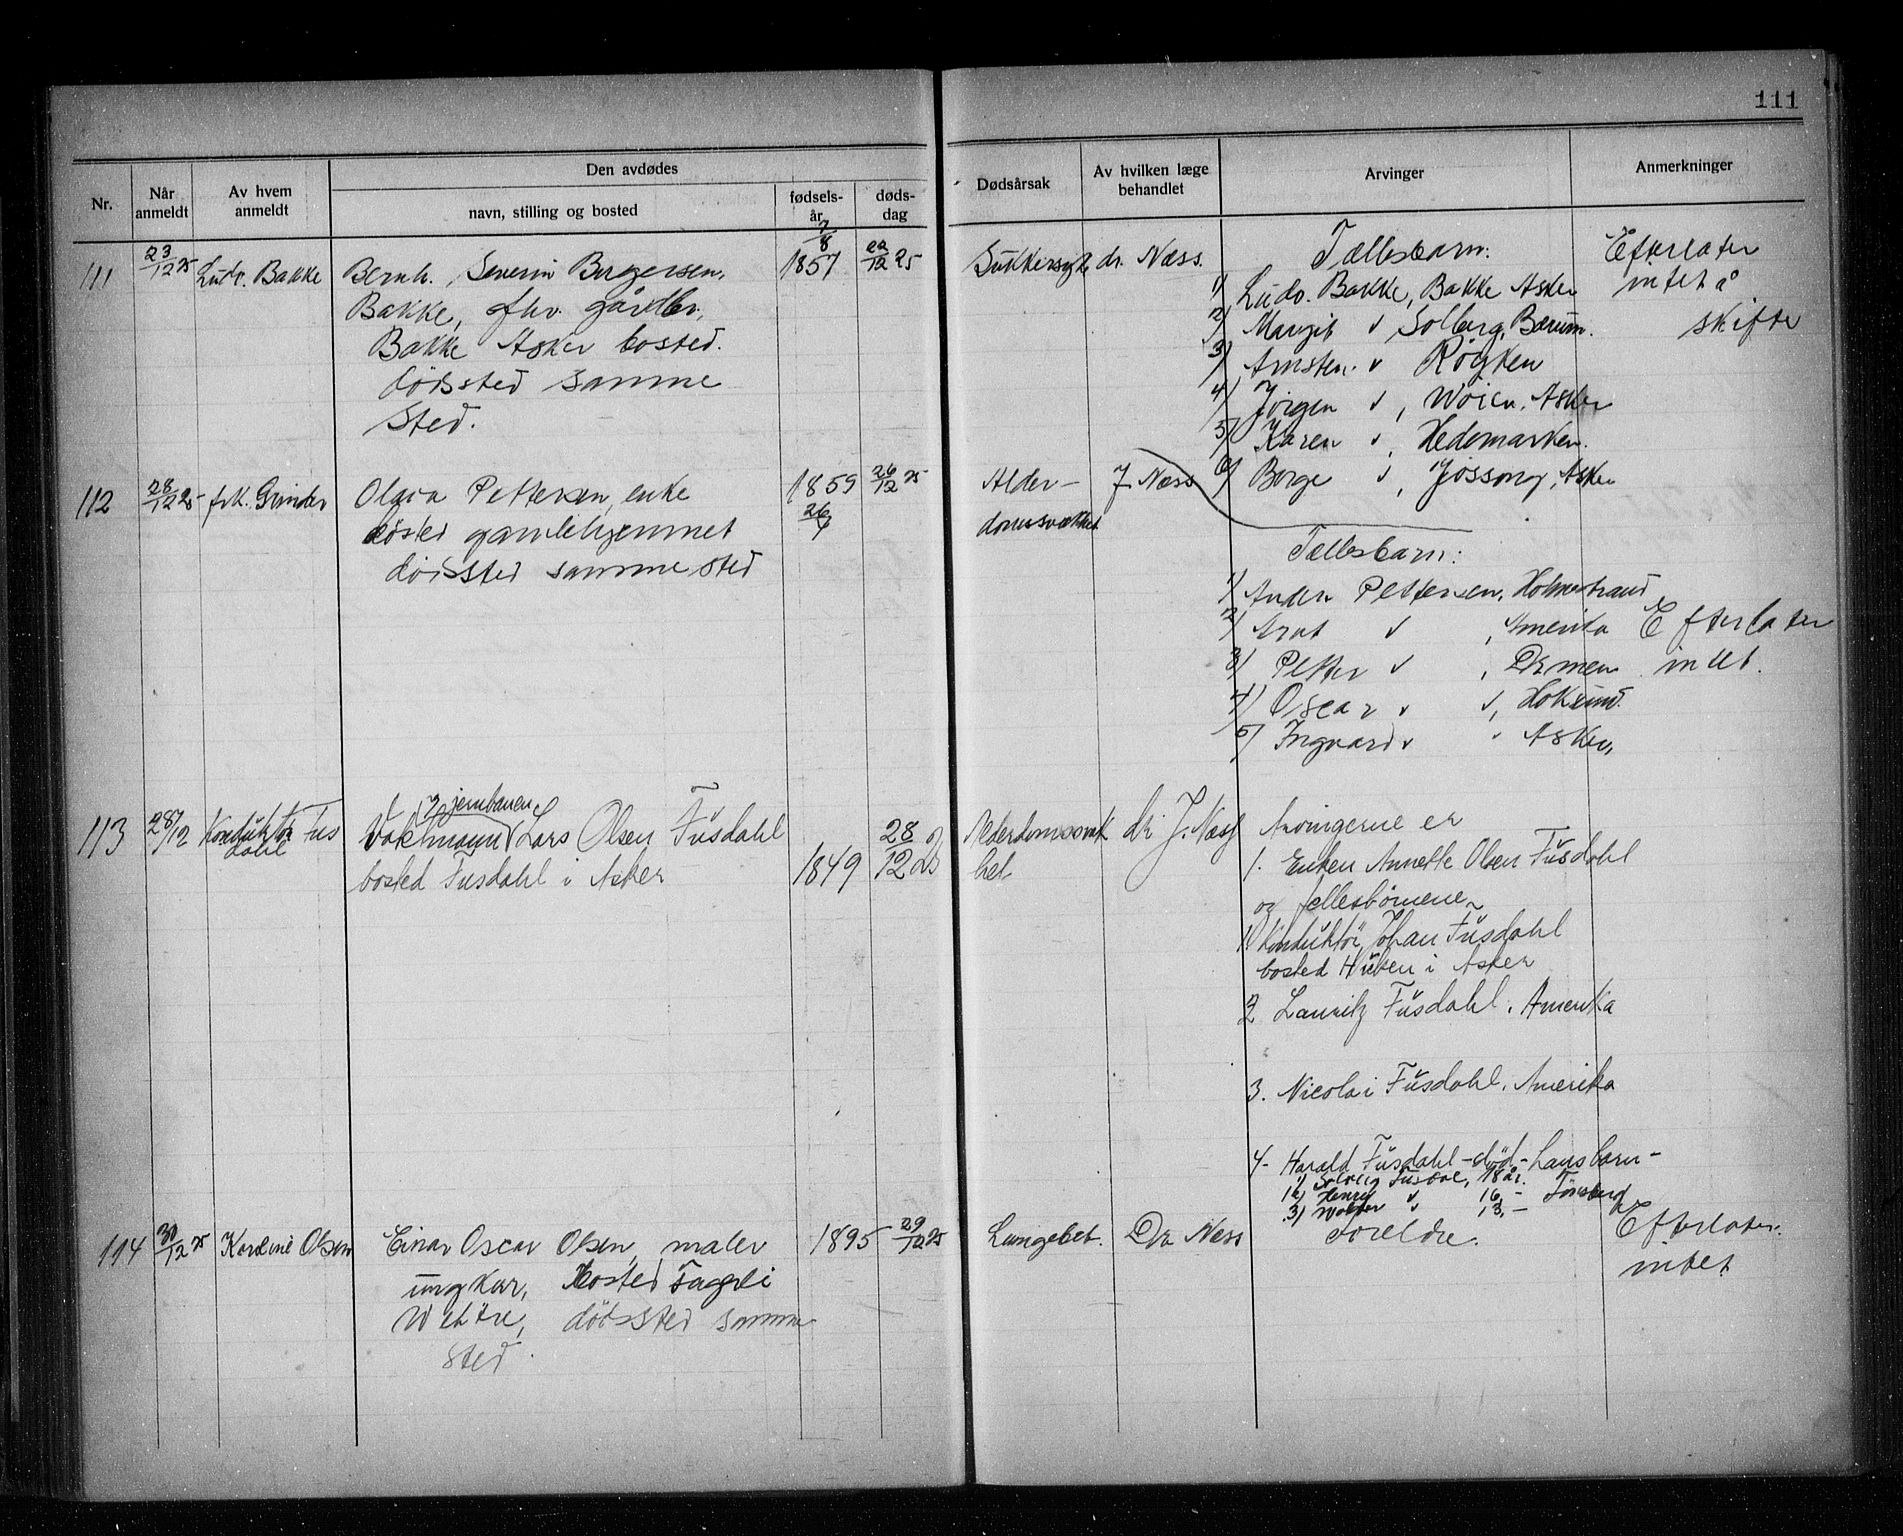 111
Nr.
Når anmeldt
Av hvem anmeldt
Den avdødes
navn, stilling og bosted
fødsels-år
døds-dag
Dødsårsak
Av hvilken læge behandlet
Arvinger
Anmerkninger
111 23/12 25 Ludv. Bakke
Bernh. Severin Borgersen,
Bakke, fhv. gårdbr.,
Bakke Asker bosted.
dødssted samme
sted.
7/8
1857
22/12 25
Sukkersyke dr. Næss.
Fællesbarn:
1) Ludv. Bakke, Bakke Asker
2) Margit " Solberg, Bærum.
3) Arnsten. " Røyken
4) Jörgen ", Wöien, Asker
5) Karen ", Hedemarken.
6) Borge ", Jössong, Asker
Efterlater
intet å
skifte
112 28/12 25 frk. Grinder
Olava Pettersen, enke
bosted gamlehjemmet
dödssted samme sted
1859
26/12 25
Alder-
domssvakhet
J. Næss
Fællesbarn:
1) Anders Pettersen, Holmestrand
2) Arnt " , Amerika
3) Petter " , Drmen
4) Oscar " ", Hoksund.
5) Ingvard " " Asker,
Efterlater
intet.
113 28/12 Konduktör Fus
dahl
jernbanen
Vaktmann v Lars Olsen Füsdahl
bosted Fusdahl i Asker
1849
28/12 25
Alderdomssvak
het
dr J. Næss
Arvingerne er
1. Enken Annette Olsen Füsdahl
og fellesbörnene
1) Konduktör Johan Füsdahl
bosted Hüken i Asker
2 Lauritz Füsdahl, Amerika
3. Nicolai Füsdahl, Amerika
4- Harald Füsdahl - död - hans barn -
1) Solveig Fusdal, 18 år.
2) Henry " 16, - Tönsberg
3) Walter " 13, -
114 30/12 25 Kardine Olsen
Einar Oscar Olsen, maler
üngkar, bosted Fagerli
Wettre, dödssted samme
sted.
1895
29/12 25
Lungebet.
Dr. Næss
Foreldre.
Efterlater
intet